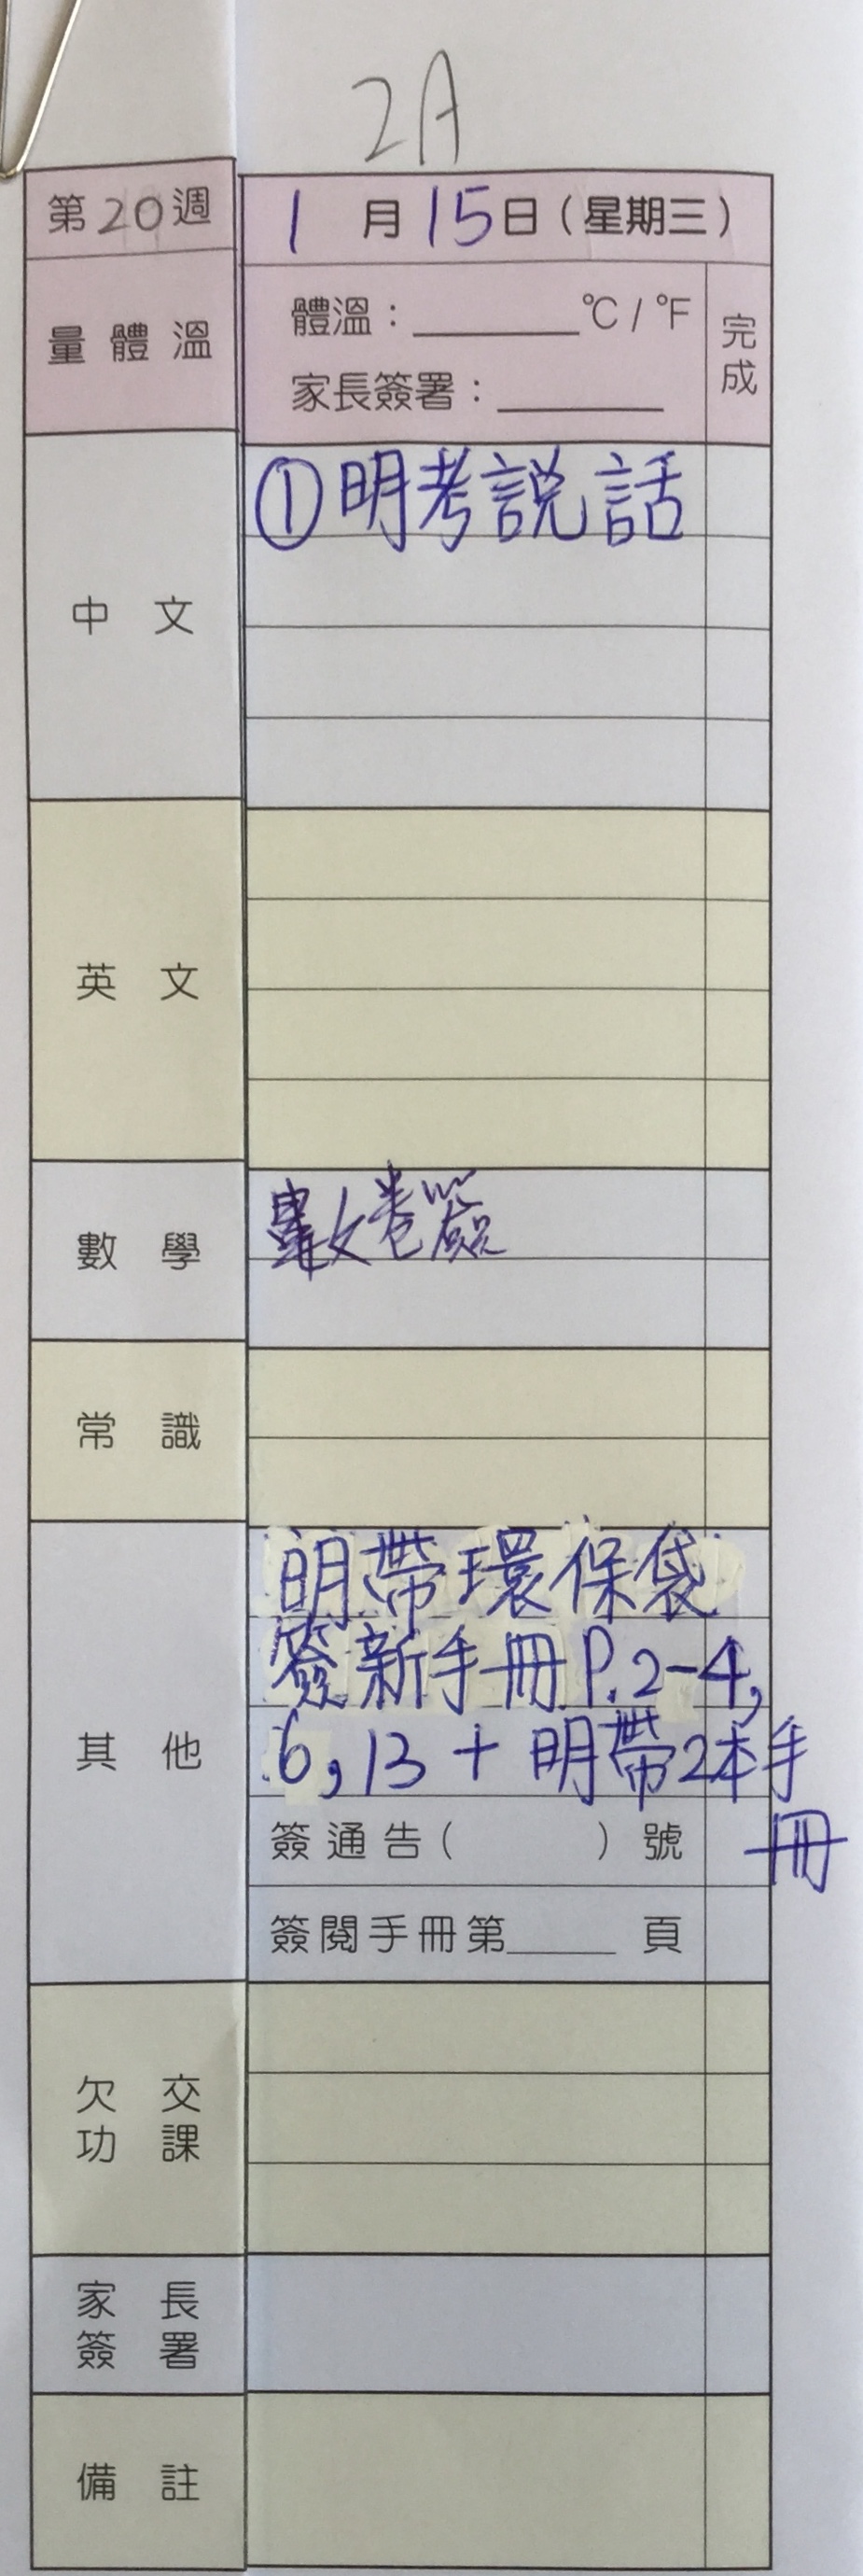 2A
第20週 1月15日(星期三)
量體溫
體溫：______°C / °F
家長簽署：______
完成
中文
①明考説話
英文
數學
數卷簽
常識
其他
明帶環保袋
簽新手冊P.2-4,
6,13 + 明帶2本手
冊
簽通告( )號
簽閱手冊第____頁
欠交
功課
家長
簽署
備註